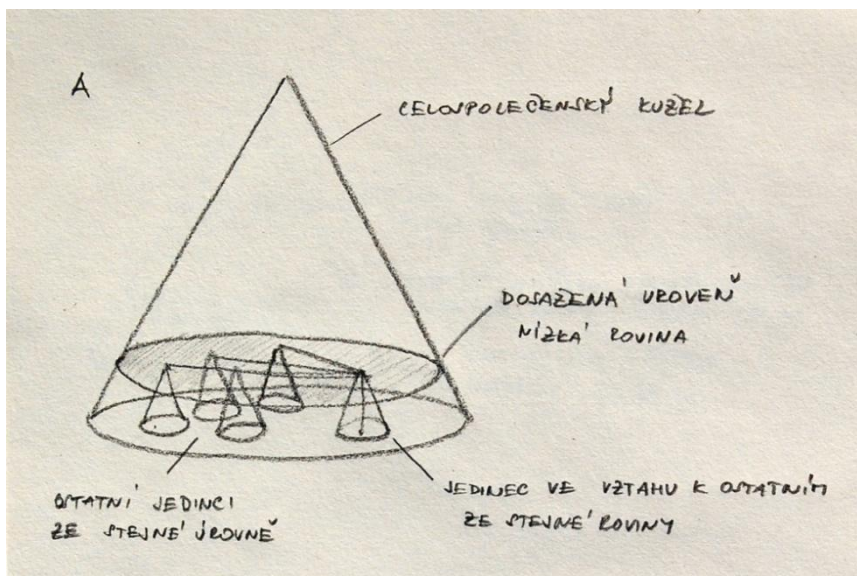 A
CELOSPOLEČENSKÝ KUŽEL
DOSAŽENÁ ÚROVEŇ
NÍZKÁ ROVINA
OSTATNÍ JEDINCI
ZE STEJNÉ ÚROVNĚ
JEDINEC VE VZTAHU K OSTATNÍM
ZE STEJNÉ ROVINY